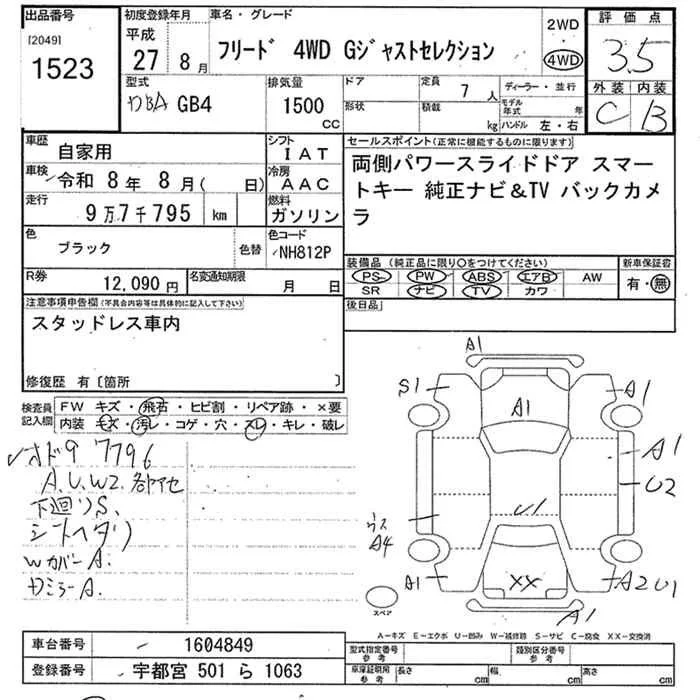 出品番号
[2049]
1523
初度登録年月
平成
27 8月
車名・グレード
フリード 4WD Gジャストセレクション
2WD
4WD
評価点
3.5
外装 内装
C B
型式
DBA GB4
排気量
1500
CC
ドア
形状
定員
7人
積載
kg
ディーラー・並行
モデル年式 年
ハンドル 左・右
車歴
自家用
シフト
IAT
車検
令和 8年 8月( 日)
冷房
AAC
走行
9万7千795 km
燃料
ガソリン
色
ブラック
色替
色コード
NH812P
R券
12,090円
名変通知期限
月 日
セールスポイント(正常に機能するものに限ります)
両側パワースライドドア スマー
トキー 純正ナビ&TV バックカメ
ラ
装備品(純正品に限り〇をつけてください)
PS PW ABS エアB AW
SR ナビ TV カワ
新車保証書
有・無
後日品
注意事項申告欄(不具合内容等は具体的に記入して下さい)
スタッドレス車内
修復歴 有〔箇所 〕
検査員
記入欄
FW キズ・飛石・ヒビ割・リペア跡・×要
内装 キズ・汚レ・コゲ・穴・スレ・キレ・破レ
オドタ 97796
A.U.W2.各部アセ
下廻りS.
シートヘタリ
WカバーA.
DミラーA.
A1
S1
A1
A1
A1
U2
U1
ウス
A4
A1
XX
A2U1
A1
スペア
A-キズ E-エクボ U-凹み W-補修跡 S-サビ C-腐食 XX-交換済
車台番号
1604849
登録番号
宇都宮 501 ら 1063
型式指定番号
参考
類別区分番号
参考
車庫証明用
参考
長さ cm
幅 cm
高さ cm